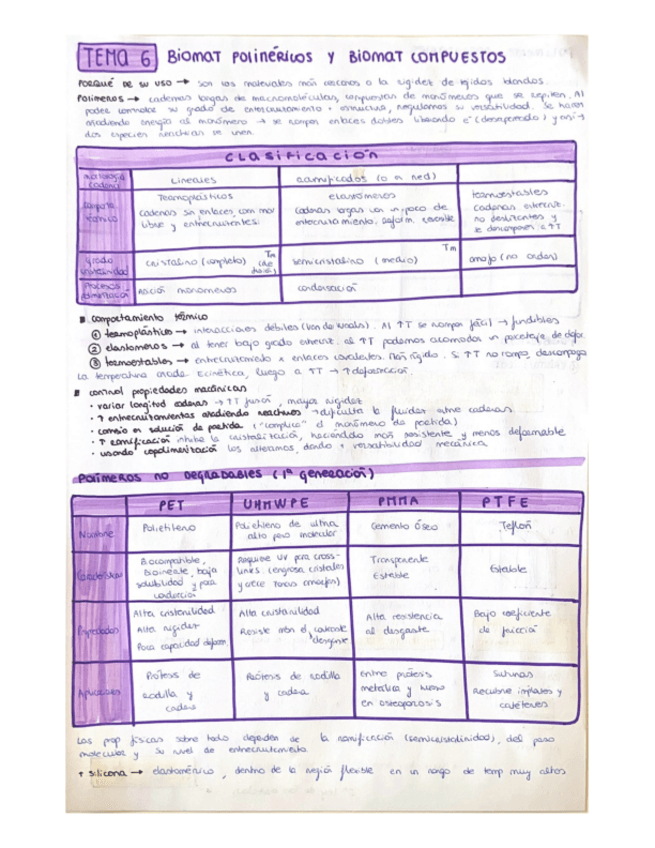 TEMA 6 BIOMAT POLIMÉRICOS Y BIOMAT COMPUESTOS
PORQUÉ DE SU USO → son los materiales más cercanos a la rigidez de tejidos blandos.
Polímeros → cadenas largas de macromoléculas, compuestas de monómeros que se repiten. Al
poder controlar su grado de entrecruzamiento + estructura, regulamos su versatilidad. Se hacen
añadiendo energía al monómero → se rompen enlaces dobles liberando e⁻ (desapareado) y así
dos especies reactivas se unen.
CLASIFICACIÓN
cadena Lineales ramificados (o en red)
térmico Termoplásticos elastómeros termoestables
cadenas sin enlaces, con mov cadenas largas con un poco de cadenas entrecruz.
libre y entrecruzantes. entrecruzamiento. Deform. no deslizantes y
se descomponen a ↑T
Grado cristalino (completo) Tm semicristalino (medio) Tm amorfo (no orden)
Procesos Adición monómeros condensación
comportamiento térmico
① termoplásticos → interacciones débiles (Van de Waals). Al ↑T se rompen fácil → fundibles
② elastómeros → al tener bajo grado entrecruz. al ↑T podemos acomodar un porcentaje de defor.
③ termoestables → entrecruzamiento x enlaces covalentes. Más rígido. Si ↑T no rompo, descompongo
La temperatura añade Ecinética, luego a ↑T → ↑deformación.
control propiedades mecánicas
• variar longitud cadenas → ↑T fusión, mayor rigidez
• ↑ entrecruzamientos añadiendo reactivos → dificulta la fluidez entre cadenas.
• cambio en solución de partida ("complico" el monómero de partida)
• ↑ ramificación inhibe la cristalización, haciéndolo más resistente y menos deformable
• usando copolimerización los alteramos, dando + versatilidad mecánica.
POLÍMEROS NO DEGRADABLES (1ª generación)
PET UHMWPE PMMA PTFE
Nombre Polietileno Polietileno de ultra alto peso molecular Cemento óseo Teflón
Biocompatible, Requiere UV para cross- Transparente Estable
bioinerte, baja links (engrosa cristales Estable
solubilidad y para
conducción
Propiedades Alta cristalinidad Alta cristalinidad Alta resistencia Bajo coeficiente
Alta rigidez Resiste al desgaste de fricción
Poca capacidad deform. desgaste
Aplicaciones Prótesis de Prótesis de rodilla entre prótesis Suturas
rodilla y y cadera metálica y hueso Recubre implantes y
cadera en osteoporosis catéteres
Las prop físicas sobre todo dependen de la ramificación (semicristalinidad), del peso
molecular y su nivel de entrecruzamiento.
silicona → elastomérico, dentro de la región flexible en un rango de temp muy altos